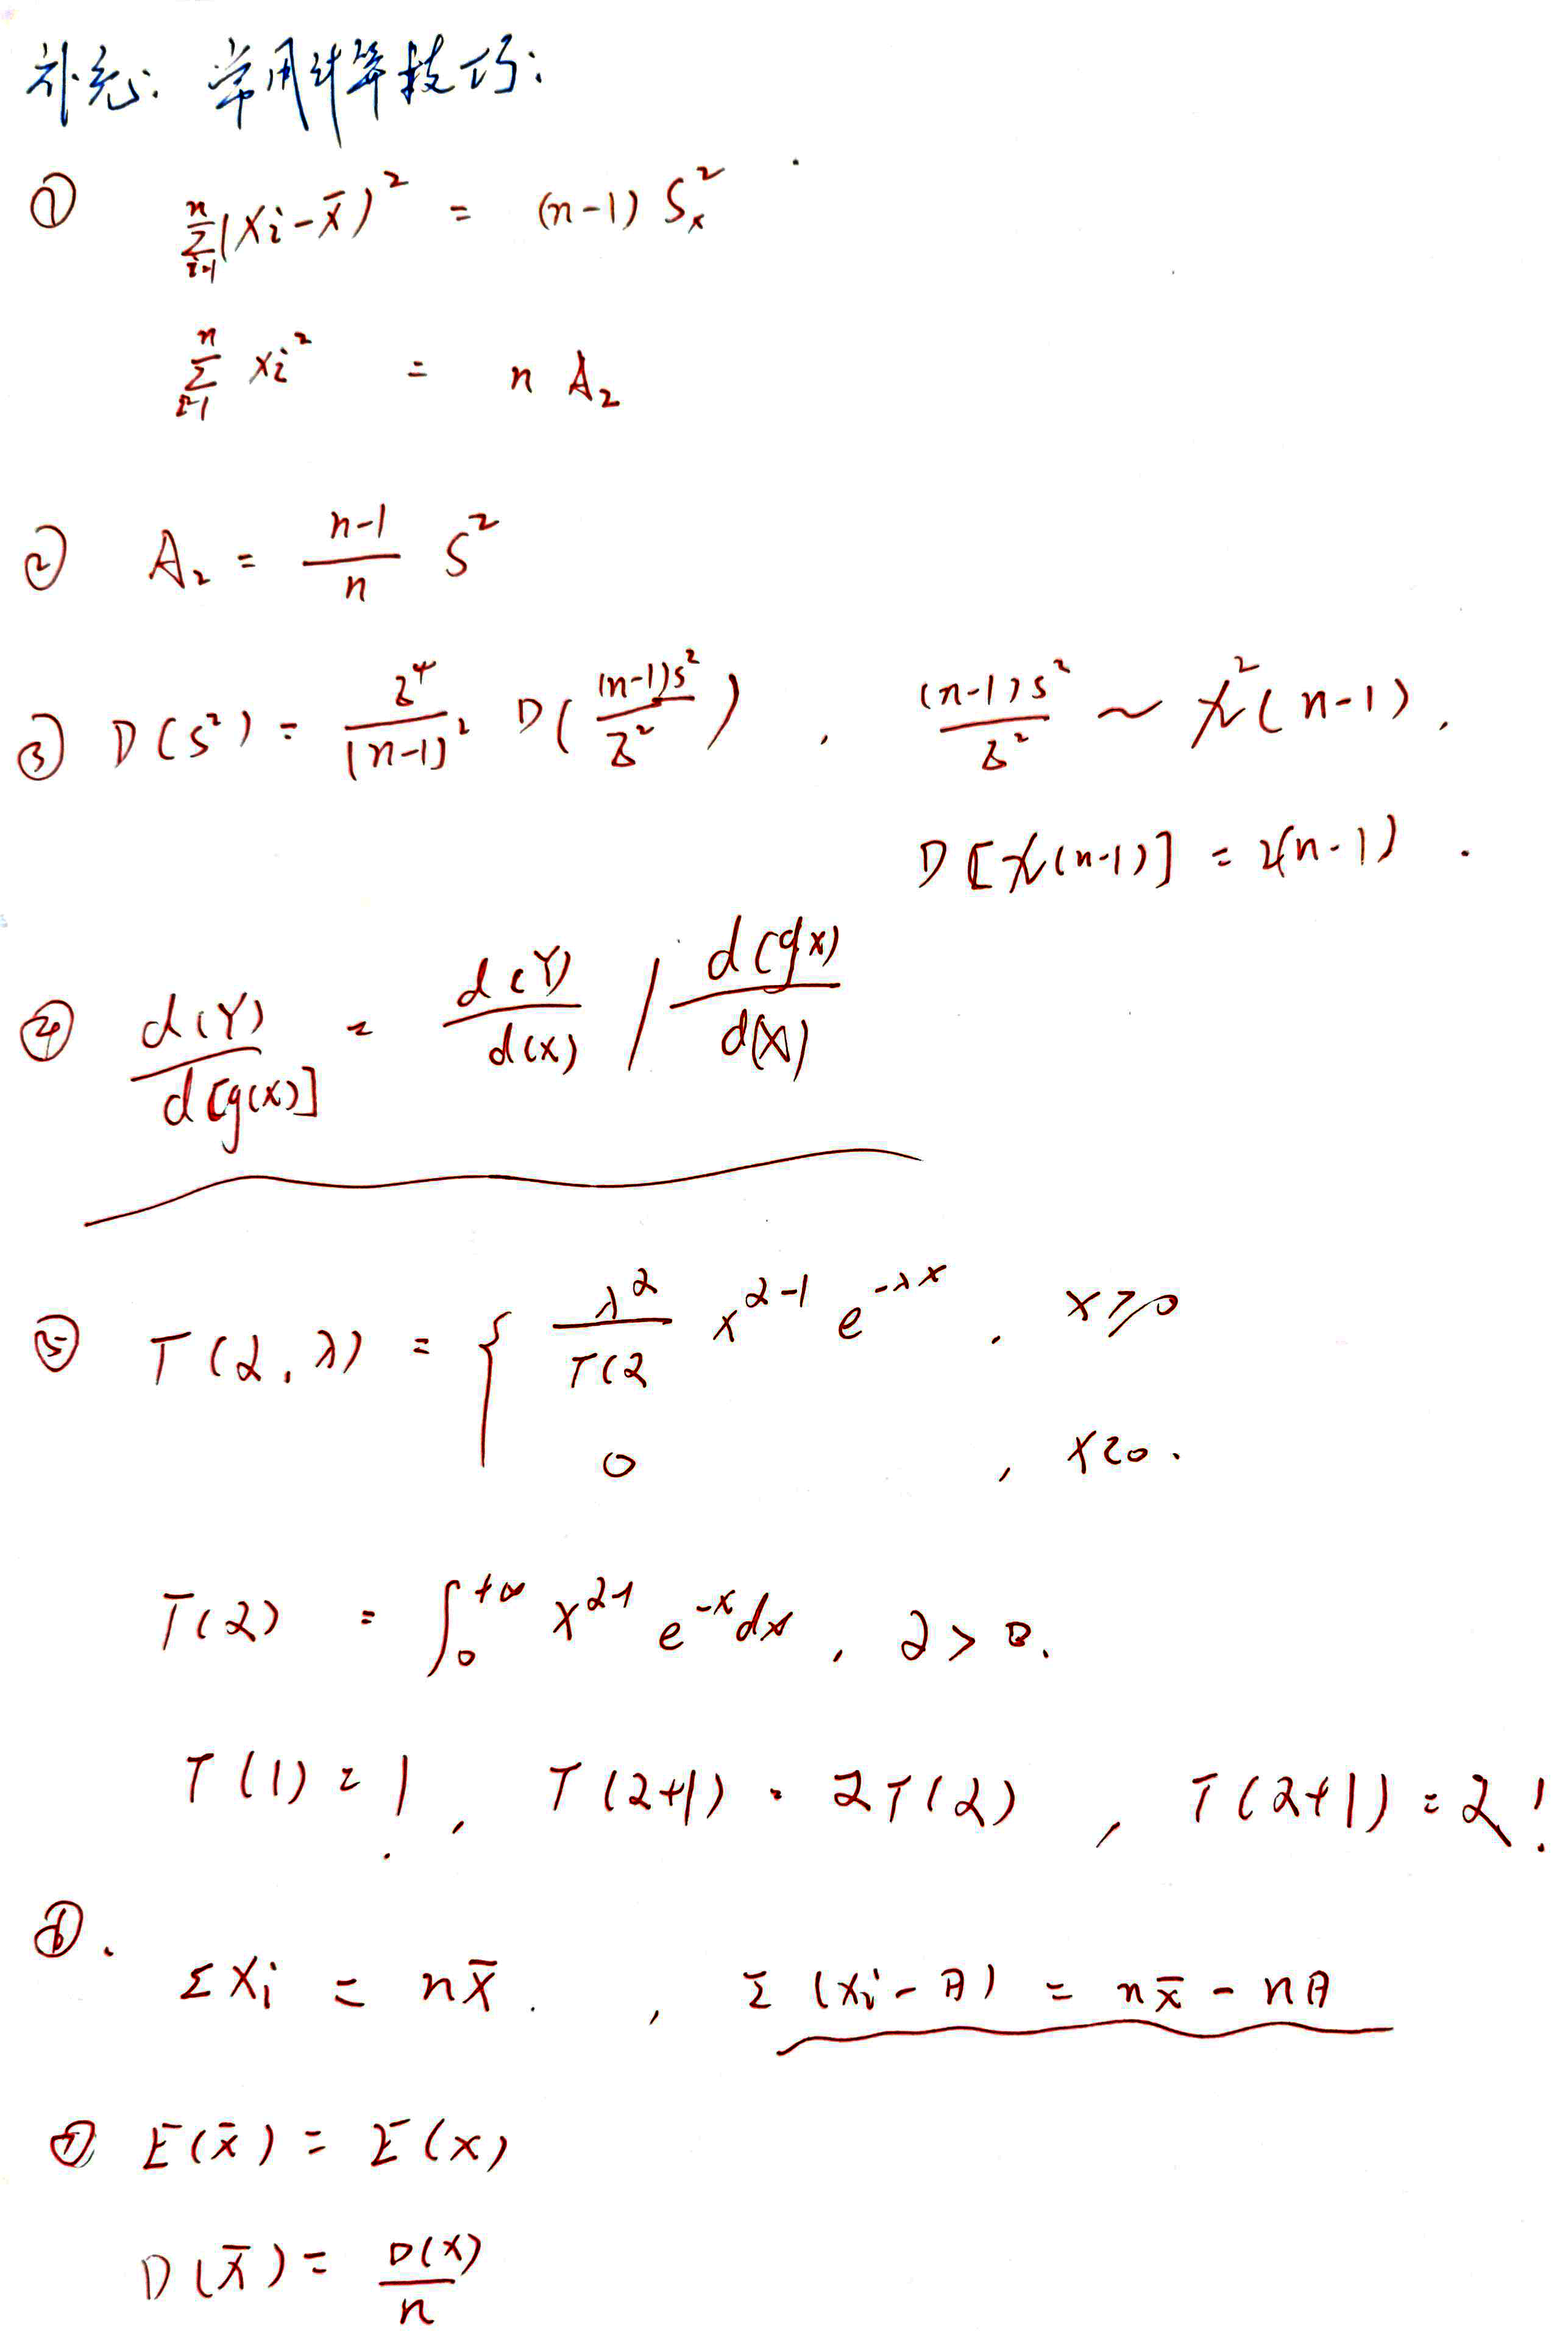 补充: 常用计算技巧:
① \sum_{i=1}^{n} (X_i - \bar{X})^2 = (n-1) S_x^2
\sum_{i=1}^{n} X_i^2 = n A_2
② A_2 = \frac{n-1}{n} S^2
③ D(S^2) = \frac{σ^4}{(n-1)^2} D(\frac{(n-1)S^2}{σ^2}), \frac{(n-1)S^2}{σ^2} ~ χ^2(n-1),
D[χ(n-1)] = 2(n-1).
④ \frac{d(Y)}{d[g(x)]} = \frac{d(Y)}{d(x)} / \frac{d(gx)}{d(x)}
⑤ Γ(α, λ) = { \frac{λ^α}{Γ(α} x^{α-1} e^{-λx}, x≥0
0, x<0.
Γ(α) = \int_0^{+∞} x^{α-1} e^{-x} dx, α>0.
Γ(1) = 1, Γ(α+1) = αΓ(α), Γ(α+1) = α!
⑥. ΣX_i = n\bar{X}., Σ(X_i - A) = n\bar{x} - nA
⑦ E(\bar{x}) = E(x)
D(\bar{X}) = \frac{D(X)}{n}